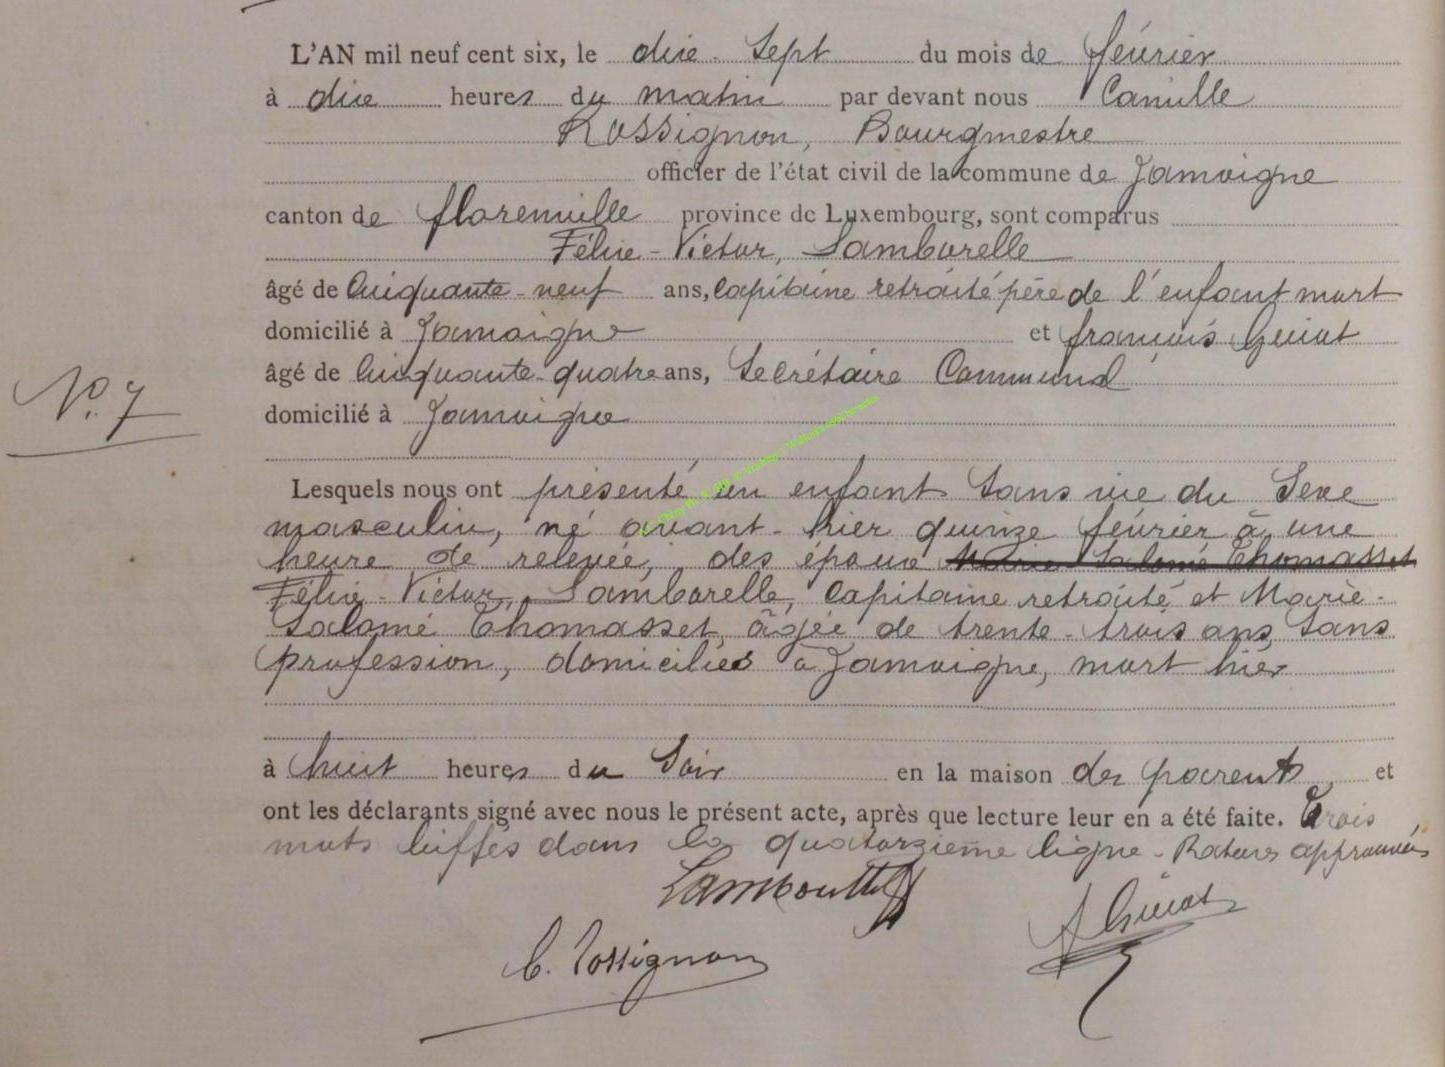 L'AN mil neuf cent six, le dix-sept du mois de février
à dix heures du matin par devant nous Camille
Rossignon, Bourgmestre
officier de l'état civil de la commune de Jamoigne
canton de florenville province de Luxembourg, sont comparus
Félix-Victor, Lamborelle
âgé de Cinquante-neuf ans, capitaine retraité père de l'enfant mort
domicilié à Jamoigne et françois Guiot
âgé de Cinquante-quatre ans, Secrétaire Communal
domicilié à Jamoigne
N° 7
Lesquels nous ont présenté un enfant sans vie du sexe
masculin, né avant-hier quinze février à une
heure de relevée, des époux Marie Salomé Thomasset
Félix-Victor, Lamborelle, capitaine retraité et Marie-
Salomé Thomasset, âgée de trente-trois ans, sans
profession, domiciliés à Jamoigne, mort hier
à huit heures du soir en la maison des parents et
ont les déclarants signé avec nous le présent acte, après que lecture leur en a été faite. Trois
mots biffés dans la quatorzième ligne. Ratures approuvées
C. Rossignon
Guiot